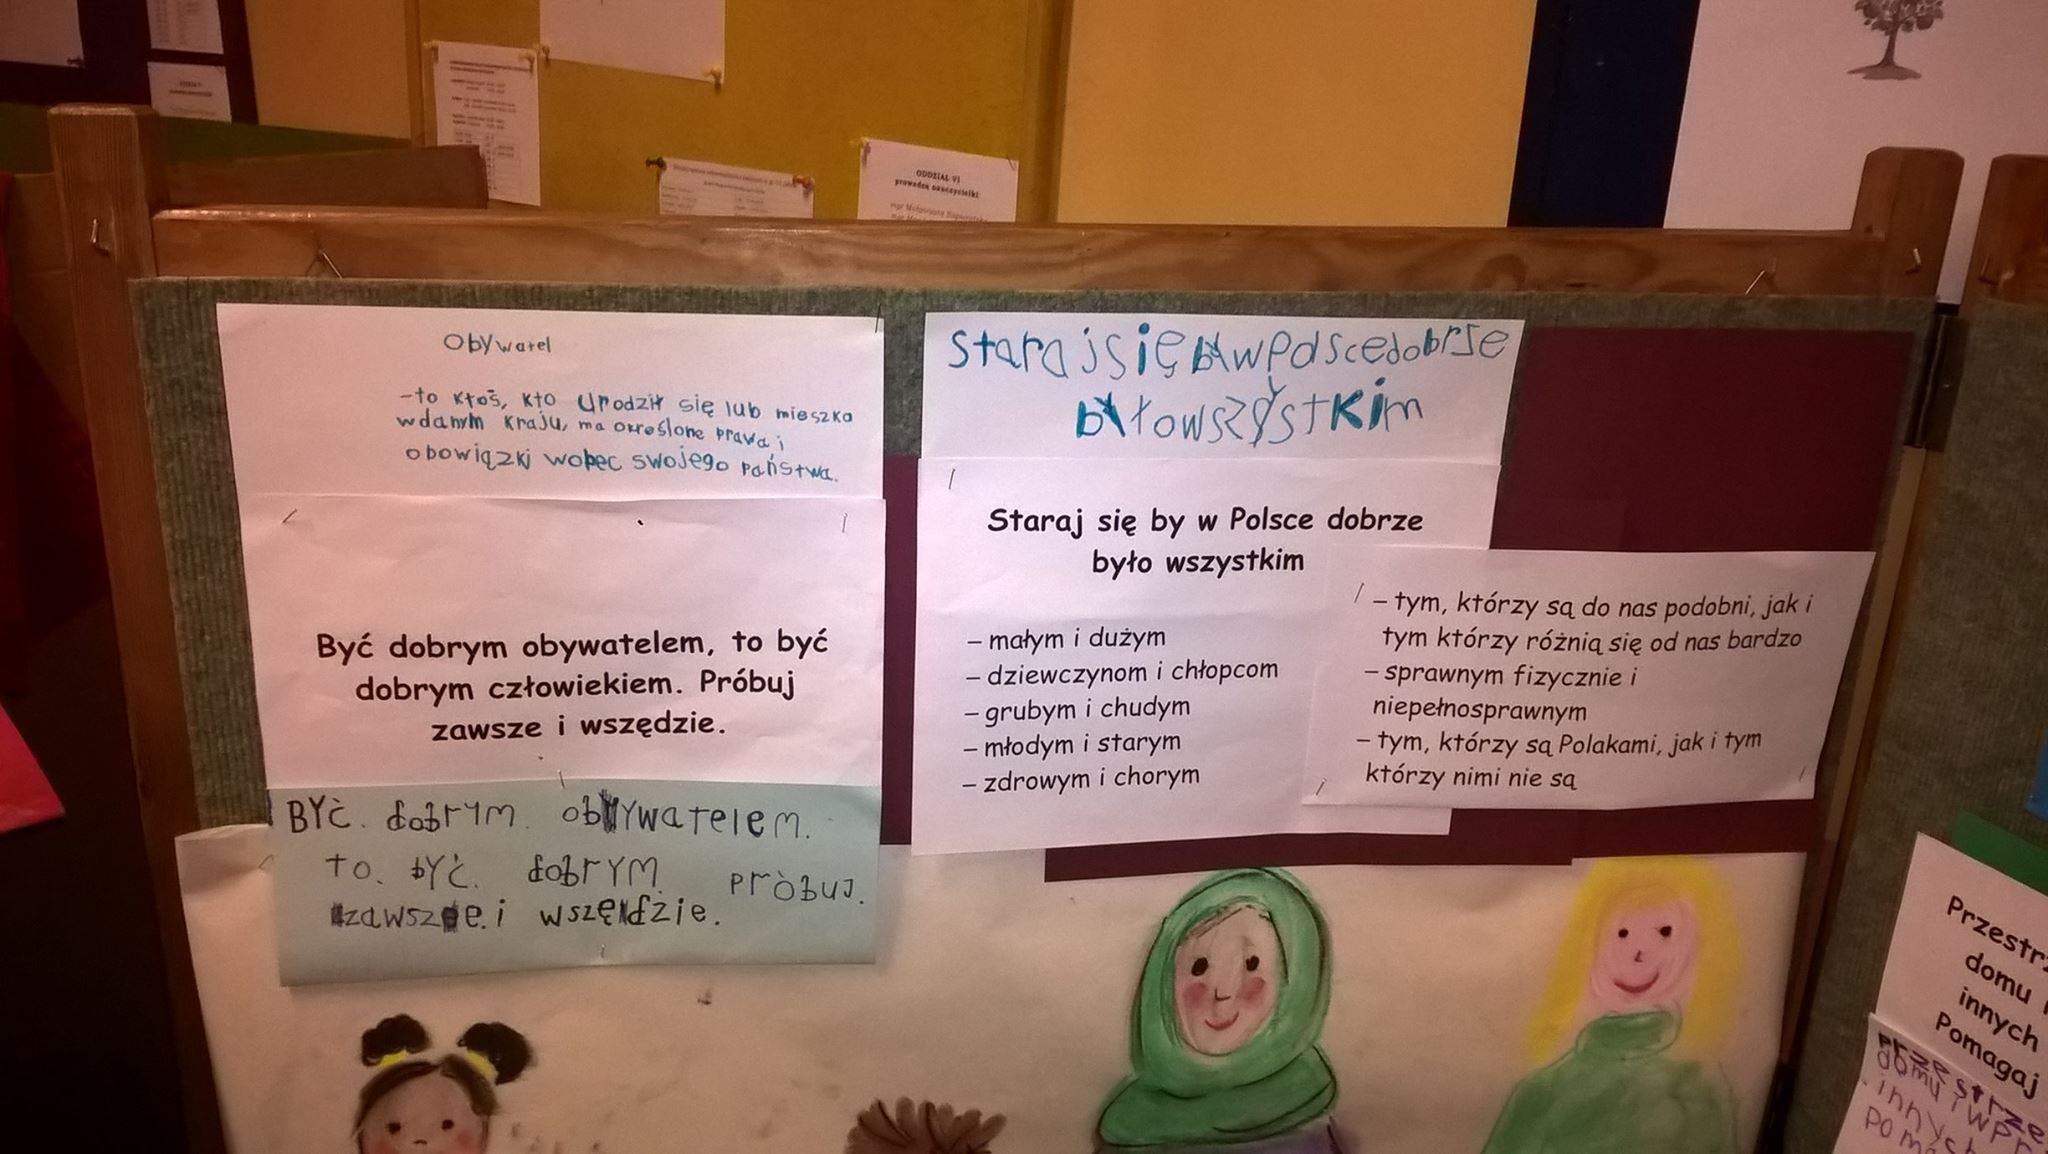 ODDZIAŁ VI
prowadzą nauczycielki
Obywatel
-to ktoś, kto urodził się lub mieszka
w danym kraju, ma określone prawa i
obowiązki wobec swojego państwa.
Być dobrym obywatelem, to być
dobrym człowiekiem. Próbuj
zawsze i wszędzie.
BYĆ. dobrym. obywatelem.
to. być. dobrym. próbuj.
zawsze. i wszędzie.
starajsię by w Polsce dobrze
byłowszystkim
Staraj się by w Polsce dobrze
było wszystkim
– małym i dużym
– dziewczynom i chłopcom
– grubym i chudym
– młodym i starym
– zdrowym i chorym
– tym, którzy są do nas podobni, jak i
tym którzy różnią się od nas bardzo
– sprawnym fizycznie i
niepełnosprawnym
– tym, którzy są Polakami, jak i tym
którzy nimi nie są
domu
innych
Pomagaj
domu i w